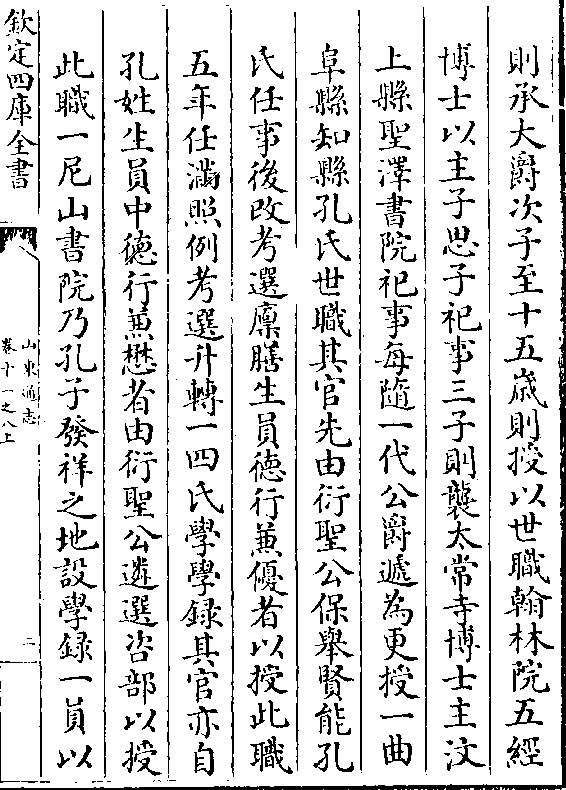 則承大爵次子至十五歲則授以世職翰林院五經
博士以主子思子祀事三子則襲太常寺博士主汶
上縣聖澤書院祀事每隨一代公爵遞為更授一曲
阜縣知縣孔氏世職其官先由衍聖公保舉賢能孔
氏任事後改考選廩膳生員德行兼優者以授此職
五年任滿照例考選升轉一四氏學學録其官亦自
孔姓生員中德行兼懋者由衍聖公遴選咨部以授
此職一尼山書院乃孔子發祥之地設學録一員以
欽定四庫全書
山東通志
卷十一之八上
二